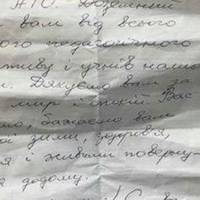 АТО. Доземний
вам від всього
ого педагогічного
тиву і учнів нашо
и. Дякуємо вам за
мир і спокій. Вас
мо, бажаємо вам
ої зими, здоров'я,
я і живими поверну-
я додому.